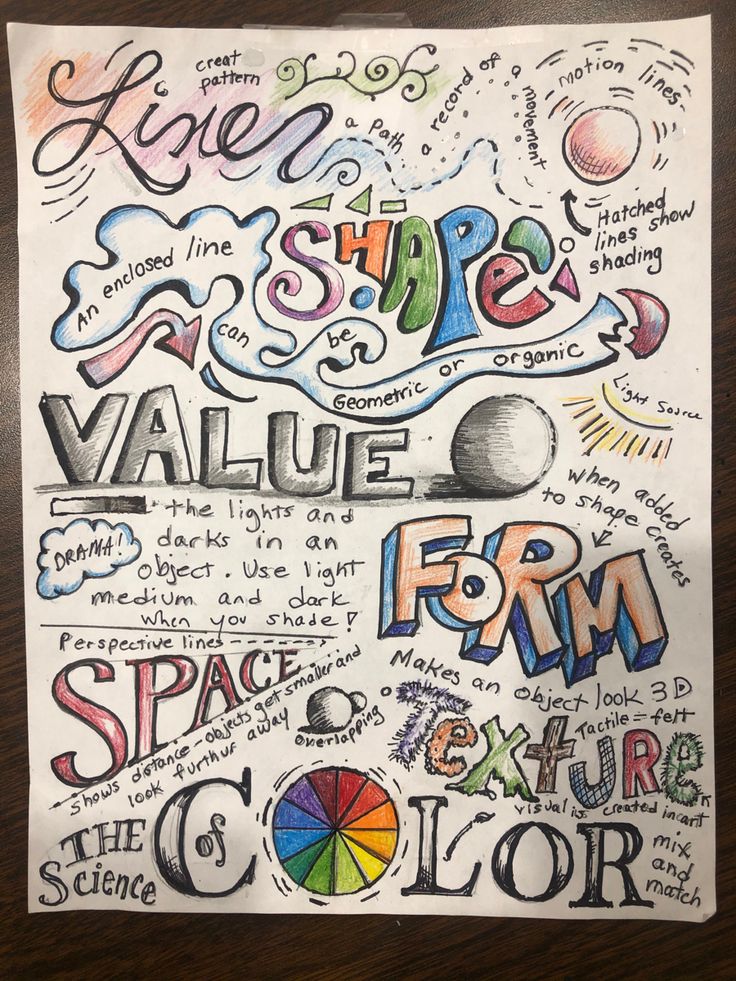 Line
creat
pattern
a path a record of a movement
motion lines
Hatched
lines show
shading
SHAPE
An enclosed line
can be
Geometric or organic
VALUE
Light Source
the lights and
darks in an
object. Use light
medium and dark
when you shade!
DRAMA!
when added
to shape creates
FORM
Makes an object look 3D
Perspective lines
SPACE
shows distance - objects get smaller and
look furthur away
overlapping
TEXTURE
Tactile = felt
visual is created in art
THE
Science
of
COLOR
mix
and
match